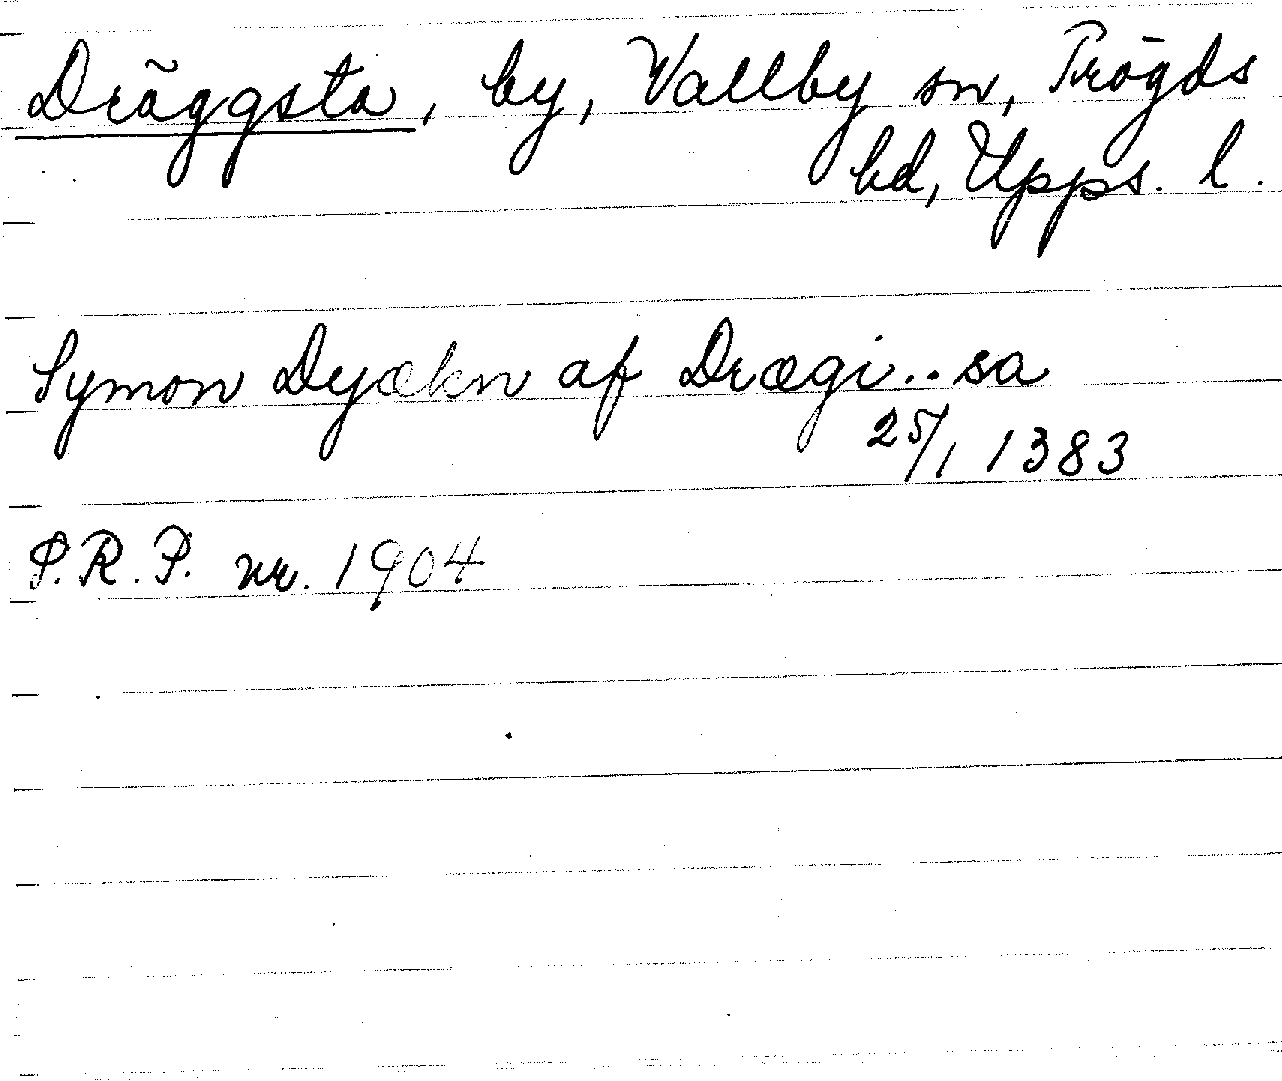 Dräggsta, by, Vallby sn, Trögds
hd, Upps. l.
Symon Dyækn af Drægi..sa
25/1 1383
S.R.P. nr. 1904